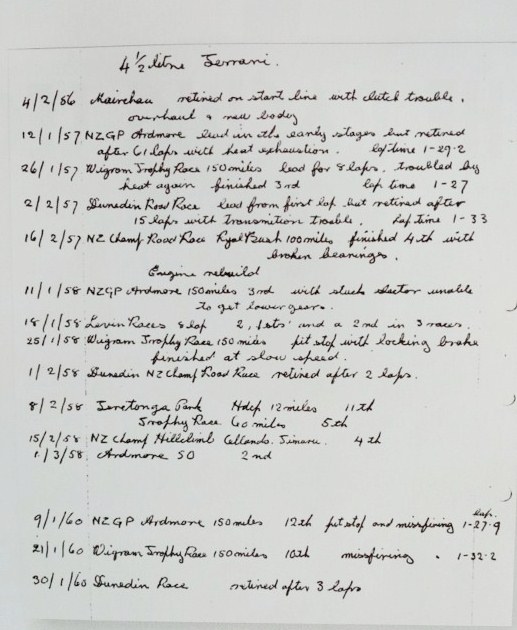 4 1/2 litre Ferrari.
4/2/56 Mairehau retired on start line with clutch trouble.
overhaul & new body
12/1/57 NZGP Ardmore lead in the early stages but retired
after 61 laps with heat exhaustion. lap time 1-29-2
26/1/57 Wigram Trophy Race 150 miles lead for 8 laps, troubled by
heat again finished 3rd lap time 1-27
2/2/57 Dunedin Road Race lead from first lap but retired after
15 laps with transmition trouble. Lap time 1-33
16/2/57 NZ Champ Road Race Ryal Bush 100 miles finished 4th with
broken bearings.
Engine rebuild
11/1/58 NZGP Ardmore 150 miles 3rd with stuck selector unable
to get lower gears.
18/1/58 Levin Races 8 lap 2, 1sts' and a 2nd in 3 races.
25/1/58 Wigram Trophy Race 150 miles pit stop with locking brake
finished at slow speed.
1/2/58 Dunedin NZ Champ Road Race retired after 2 laps.
8/2/58 Teretonga Park Hdcp 12 miles 11th
Trophy Race 60 miles 5th
15/2/58 NZ Champ Hillclimb Timaru. 4th
1/3/58 Ardmore 50 2nd
Laps.
9/1/60 NZGP Ardmore 150 miles 12th pit stop and missfiring 1-27.9
21/1/60 Wigram Trophy Race 150 miles 10th missfiring . 1-32.2
30/1/60 Dunedin Race retired after 3 laps